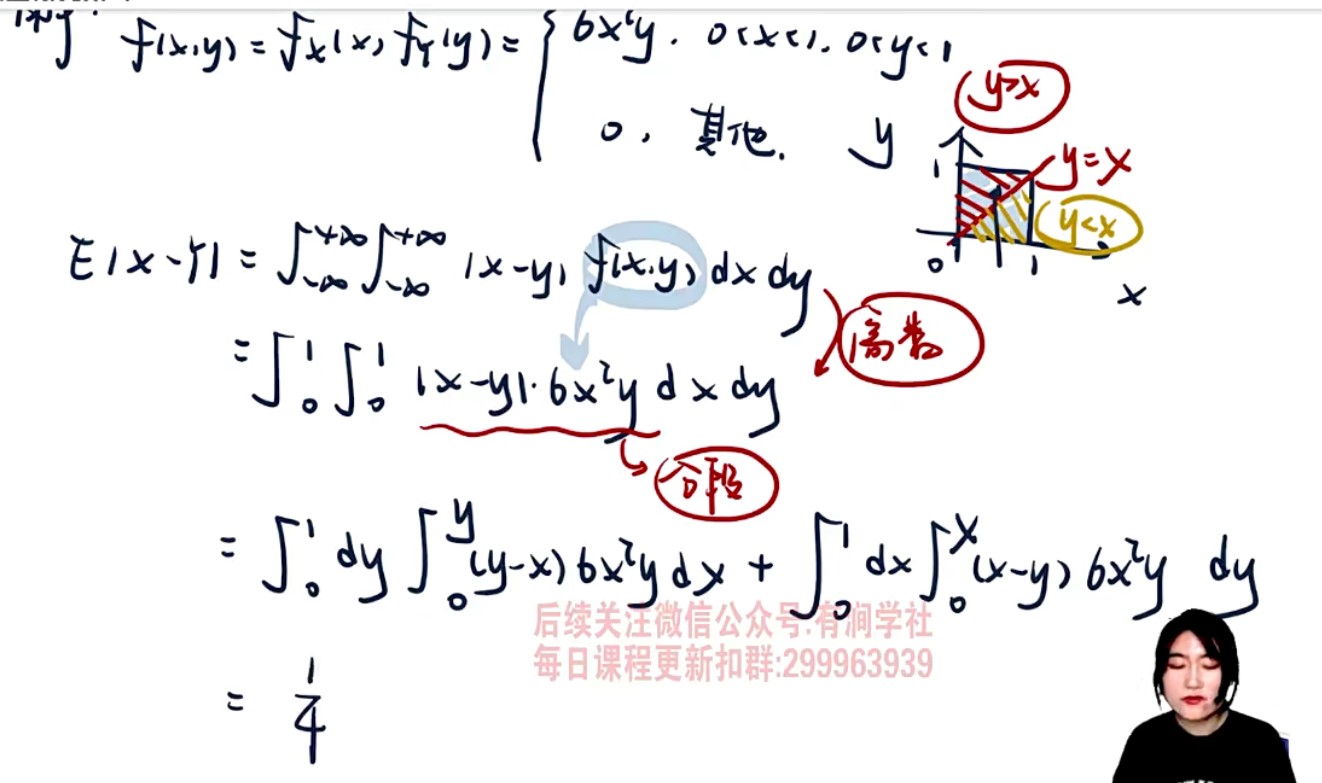 f(x,y) = f_X(x) f_Y(y) = { 6x²y, 0<x<1, 0<y<1
0, 其他.
y>x
y
1
y=x
y<x
0
1
x
E|X-Y| = ∫_{-∞}^{+∞} ∫_{-∞}^{+∞} |x-y| f(x,y) dx dy
高数
= ∫_0^1 ∫_0^1 |x-y|·6x²y dx dy
分段
= ∫_0^1 dy ∫_0^y (y-x) 6x²y dx + ∫_0^1 dx ∫_0^x (x-y) 6x²y dy
后续关注微信公众号:有涧学社
每日课程更新扣群:299963939
= 1/4